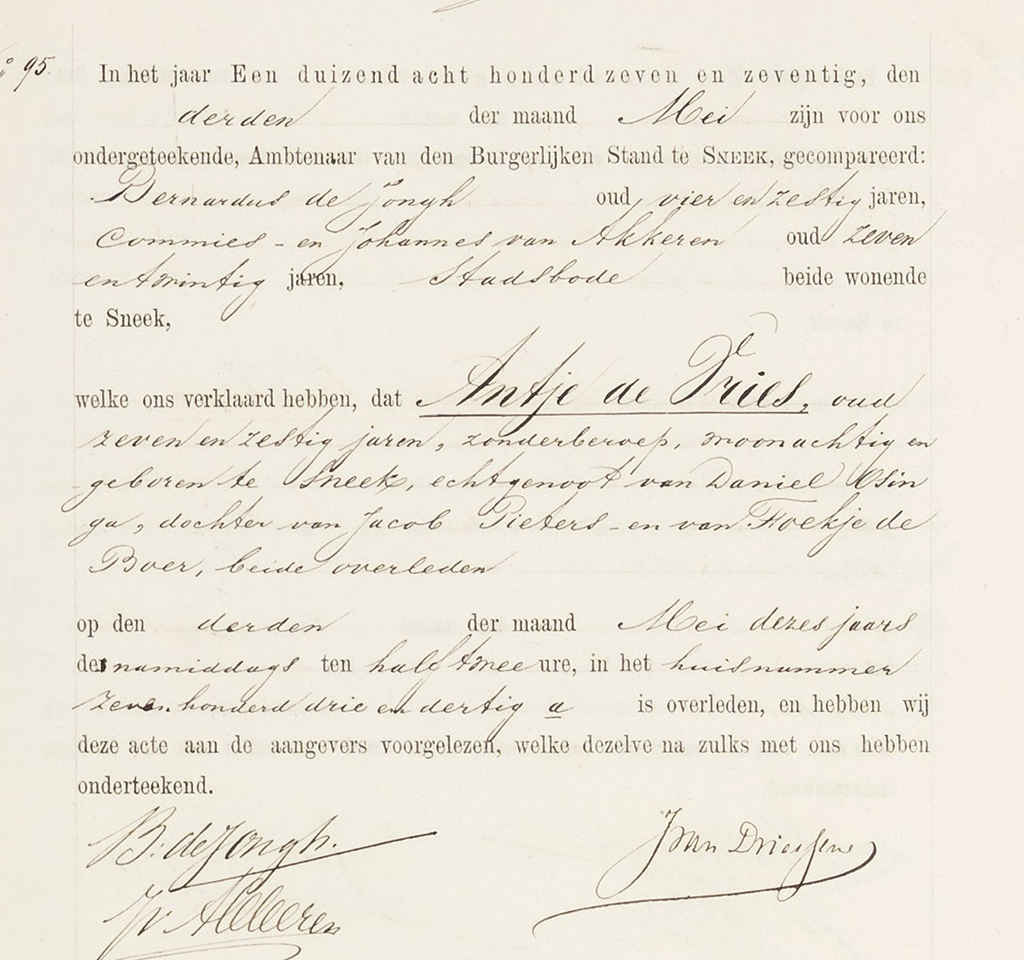 No 95.
In het jaar Een duizend acht honderd zeven en zeventig, den
derden der maand Mei zijn voor ons
ondergeteekende, Ambtenaar van den Burgerlijken Stand te SNEEK, gecompareerd:
Bernardus de Jongh oud vier en zestig jaren,
Commies - en Johannes van Akkeren oud zeven
en twintig jaren, Stadsbode beide wonende
te Sneek,
welke ons verklaard hebben, dat Antje de Vries, oud
zeven en zestig jaren, zonder beroep, woonachtig en
geboren te Sneek, echtgenoot van Daniel Osin
ga, dochter van Jacob Pieters - en van Foekje de
Boer, beide overleden
op den derden der maand Mei dezes jaars
des namiddags ten half twee ure, in het huisnummer
zeven honderd drie en dertig a is overleden, en hebben wij
deze acte aan de aangevers voorgelezen, welke dezelve na zulks met ons hebben
onderteekend.
B: de Jongh.
J van Driessen
Jv Akkeren